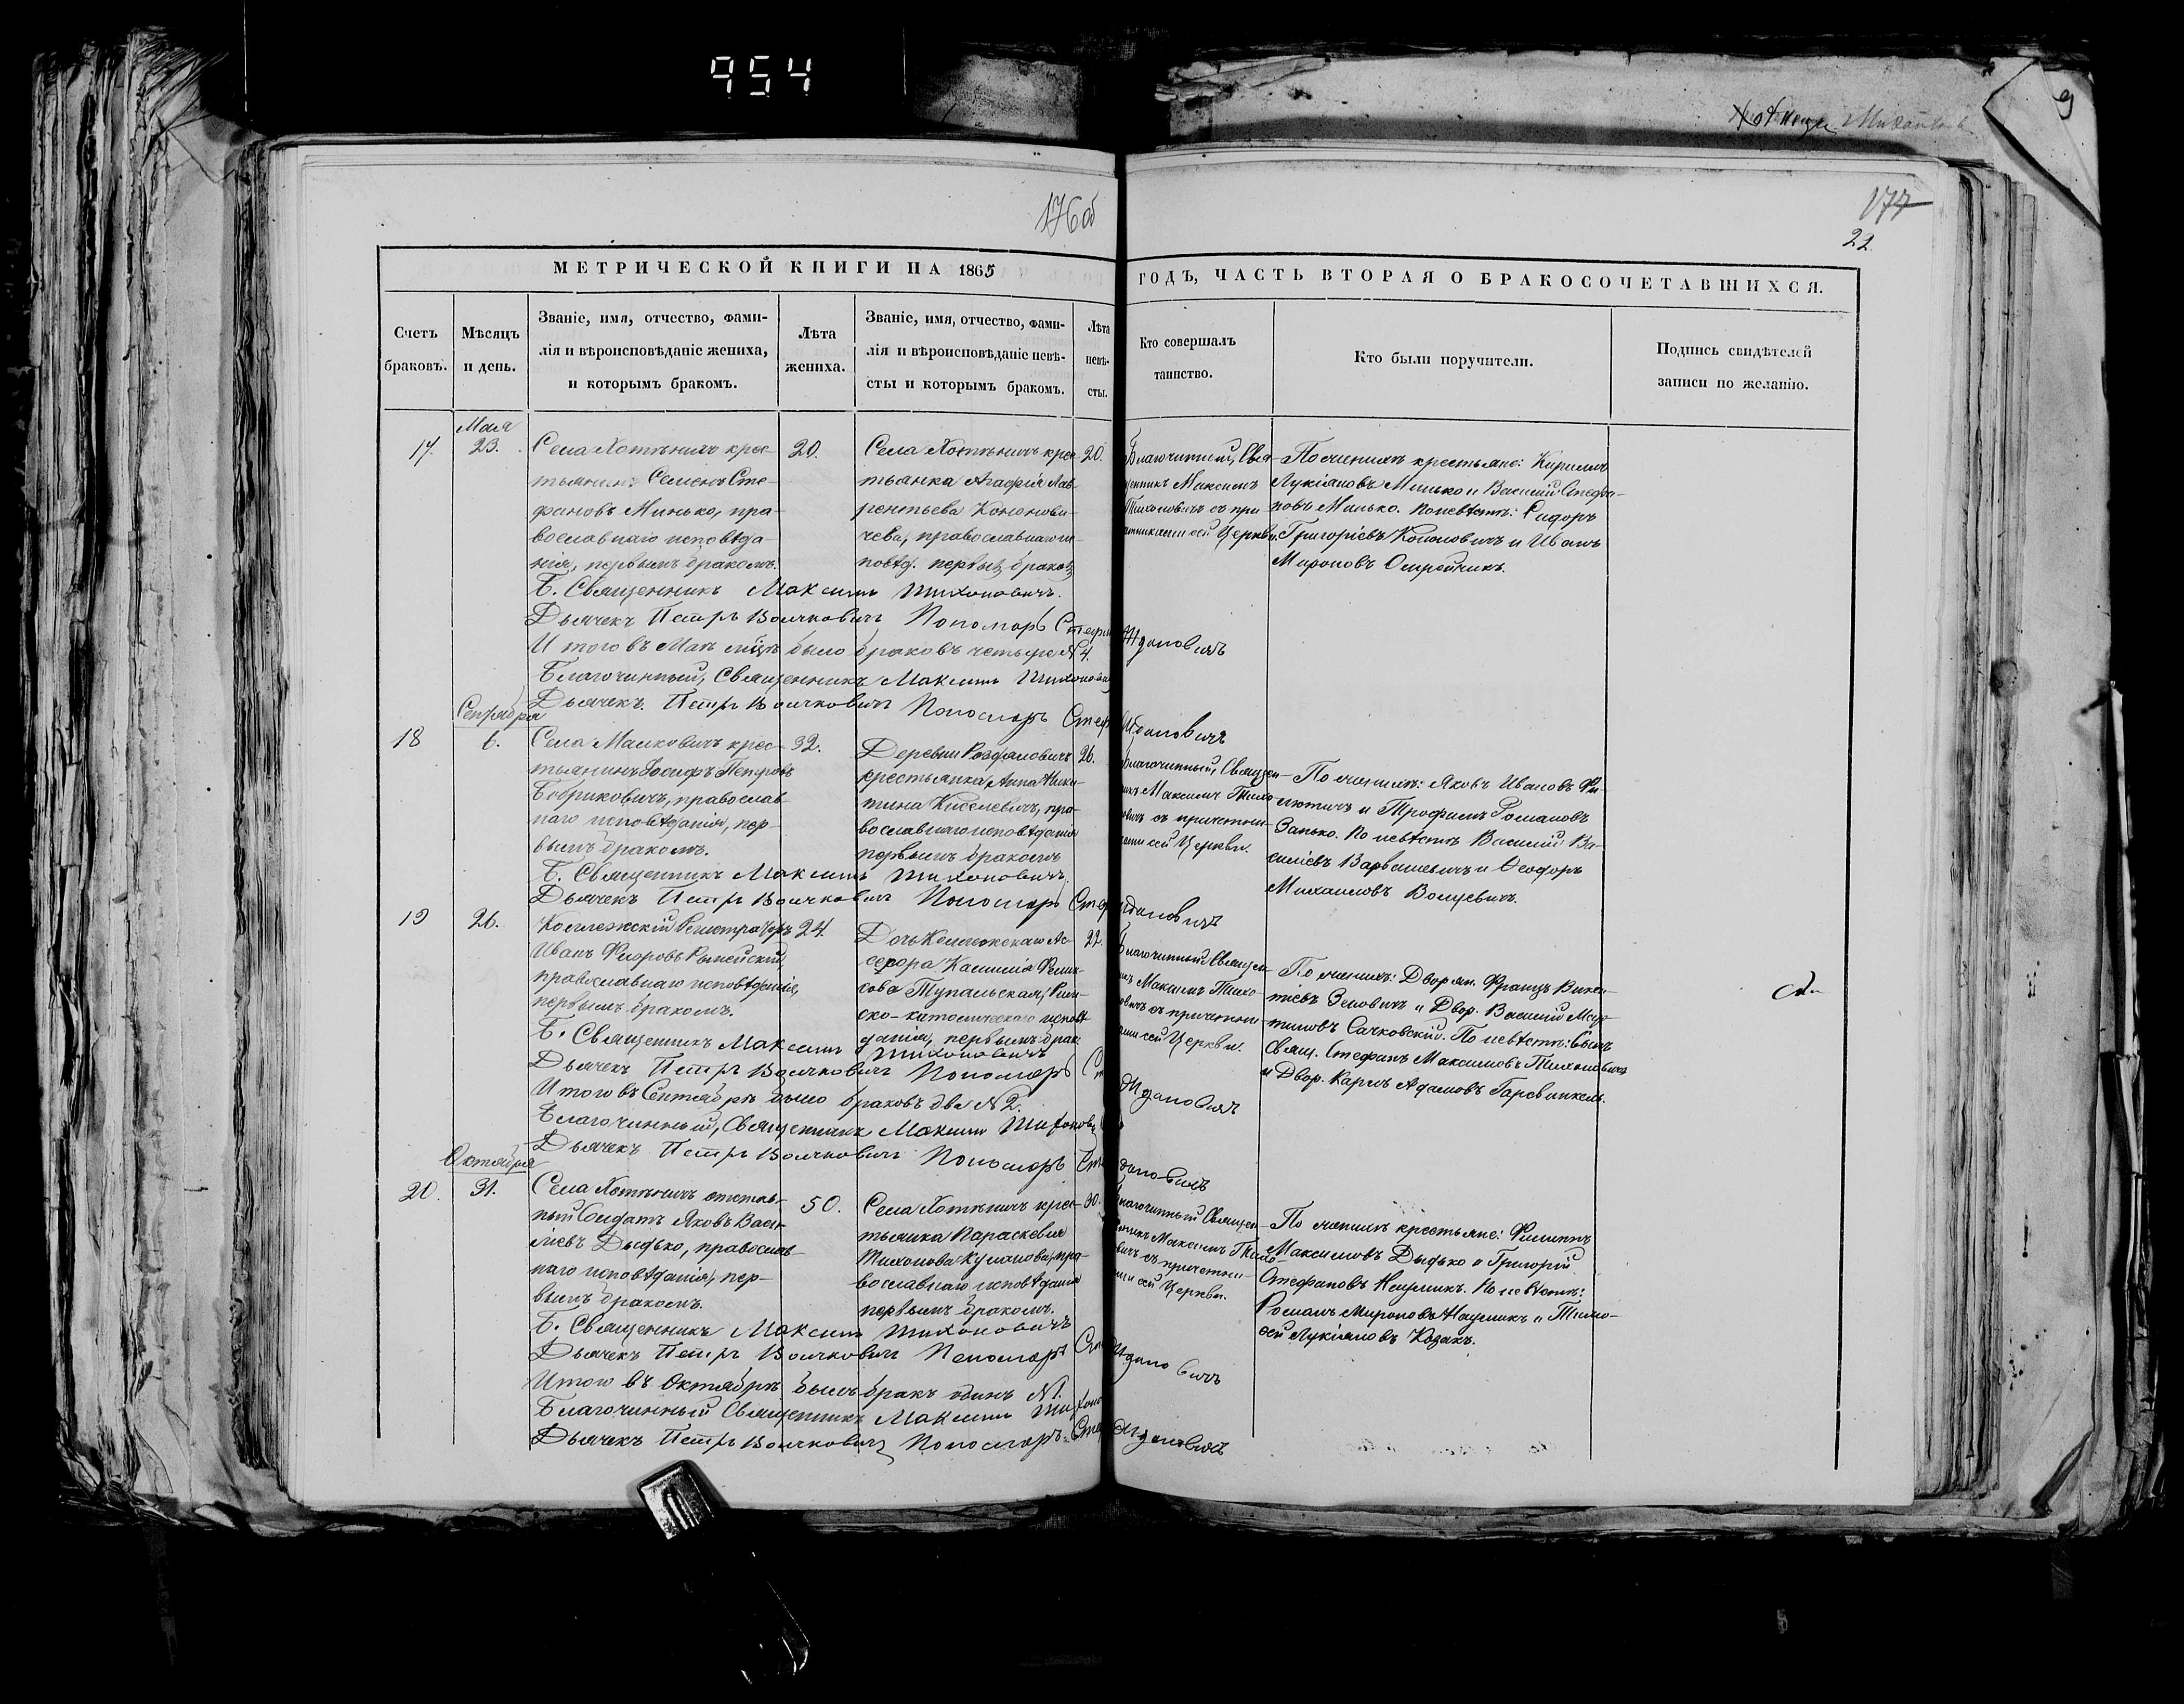 954
176об
177
22.
9
МЕТРИЧЕСКОЙ КНИГИ НА 1865
ГОДЪ, ЧАСТЬ ВТОРАЯ О БРАКОСОЧЕТАВШИХСЯ.
Счетъ браковъ.
Мѣсяцъ и день.
Званіе, имя, отчество, фами-
лія и вѣроисповѣданіе жениха,
и которымъ бракомъ.
Лѣта жениха.
Званіе, имя, отчество, фами-
лія и вѣроисповѣданіе невѣ-
сты и которымъ бракомъ.
Лѣта невѣ-
сты.
Кто совершалъ
таинство.
Кто были поручители.
Подпись свидѣтелей
записи по желанію.
Мая
17.
23.
Села Хотѣничъ крес-
тьянинъ Семенъ Сте-
фановъ Минько, пра-
вославнаго исповѣда-
нія, первымъ бракомъ.
20.
Села Хотѣничъ крес-
тьянка Агафія Лав-
рентьева Кононови-
чева, православнаго ис-
повѣд. первым бракомъ
20.
Благочинный, Свя-
щенникъ Максимъ
Тихоновичъ съ при-
четниками сей Церкви.
По женихѣ крестьяне: Кириллъ
Лукіановъ Минько и Василій Стефа-
новъ Минько. По невѣстѣ: Сидоръ
Григоріевъ Кононовичъ и Иванъ
Мироновъ
Б. Священникъ Максимъ Тихоновичъ.
Дьячекъ Петръ Волчковичъ Пономарь Стеф Ждановичъ
Итого въ Маѣ мцѣ было браковъ четыре №4.
Благочинный, Священникъ Максимъ Тихонович
Дьячекъ Петръ Волчковичъ Пономарь Стеф Ждановичъ
Сентября
18
6.
Села Малковичъ крес-
тьянинъ Іосифъ Петровъ
Бобриковичъ, православ-
наго исповѣданія, пер-
вымъ бракомъ.
32.
Деревни Раздяловичъ
крестьянка Анна Ники-
тина Киселевичъ, пра-
вославнаго исповѣданія
первымъ бракомъ
26.
Благочинный, Священ-
никъ Максимъ Тихо-
новичъ съ причетни-
ками сей Церкви.
По женихѣ: Яковъ Ивановъ Фи-
лютичъ и Трофимъ Романовъ
Занько. По невѣстѣ Василій Ва-
силіевъ Варвашевичъ и Ѳеодоръ
Михаиловъ
Б. Священникъ Максимъ Тихоновичъ.
Дьячекъ Петръ Волчковичъ Пономарь Стеф Ждановичъ
19
26.
Коллежскій Регистраторъ
Иванъ Ѳедоровъ
православнаго исповѣданія,
первымъ бракомъ.
24.
Дочь Коллежскаго Ас-
сесора Камилія Фелик-
сова Тупальская, Рим-
ско-католическаго исповѣ-
данія, первымъ брак
22.
Благочинный Священ-
никъ Максимъ Тихо-
новичъ съ причетни-
ками сей Церкви.
По женихѣ: Дворян. Францъ Викен-
тіевъ Зеновичъ и Двор. Василій Мар-
тиновъ Сачковскій. По невѣстѣ: Сынъ
Свящ. Стефанъ Максимовъ Тихоновичъ
и Двор. Карлъ Адамовъ
Б. Священникъ Максимъ Тихоновичъ
Дьячекъ Петръ Волчковичъ Пономарь Ст Ждановичъ
Итого въ Сентябрѣ было браковъ два №2.
Благочинный, Священникъ Максимъ Тихонович
Дьячекъ Петръ Волчковичъ Пономарь Сте Ждановичъ
Октября
20.
31.
Села Хотѣничъ отстав-
ный Солдатъ Яковъ Васи-
ліевъ Дыдько, православ-
наго исповѣданія, пер-
вымъ бракомъ.
50.
Села Хотѣничъ крес-
тьянка Параскевія
Тихонова Куланова, пра-
вославнаго исповѣданія
первымъ бракомъ.
30.
Благочинный Священ-
никъ Максимъ Тихо-
новичъ съ причетни-
ками сей Церкви.
По женихѣ крестьяне: Филиппъ
Максимовъ Дыдько и Григорій
Стефановъ Наумикъ. По невѣстѣ:
Романъ Мироновъ Наумикъ и Тимо-
ѳей Лукіановъ Козакъ.
Б. Священникъ Максимъ Тихоновичъ
Дьячекъ Петръ Волчковичъ Пономарь Стеф Ждановичъ
Итого въ Октябрѣ былъ бракъ одинъ №1.
Благочинный Священникъ Максимъ Тихоно
Дьячекъ Петръ Волчковичъ Пономарь Стеф Ждановичъ